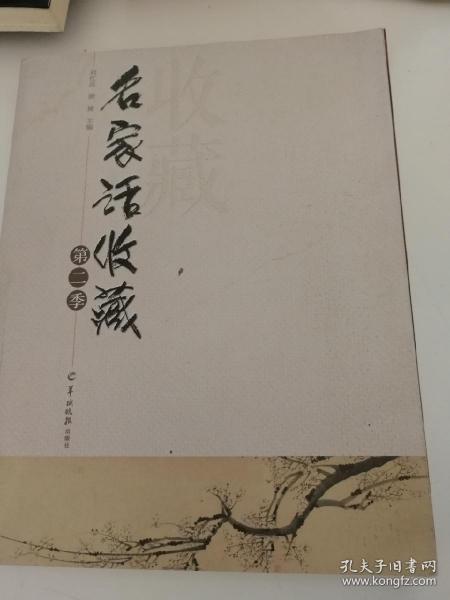 收藏
名家话收藏
第二季
主编
羊城晚报出版社
孔夫子旧书网
www.kongfz.com